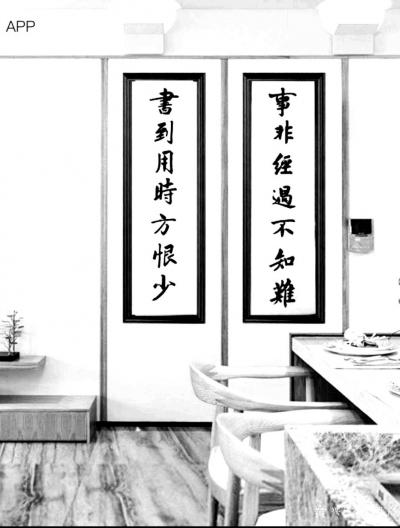 APP
書到用時方恨少
事非經過不知難